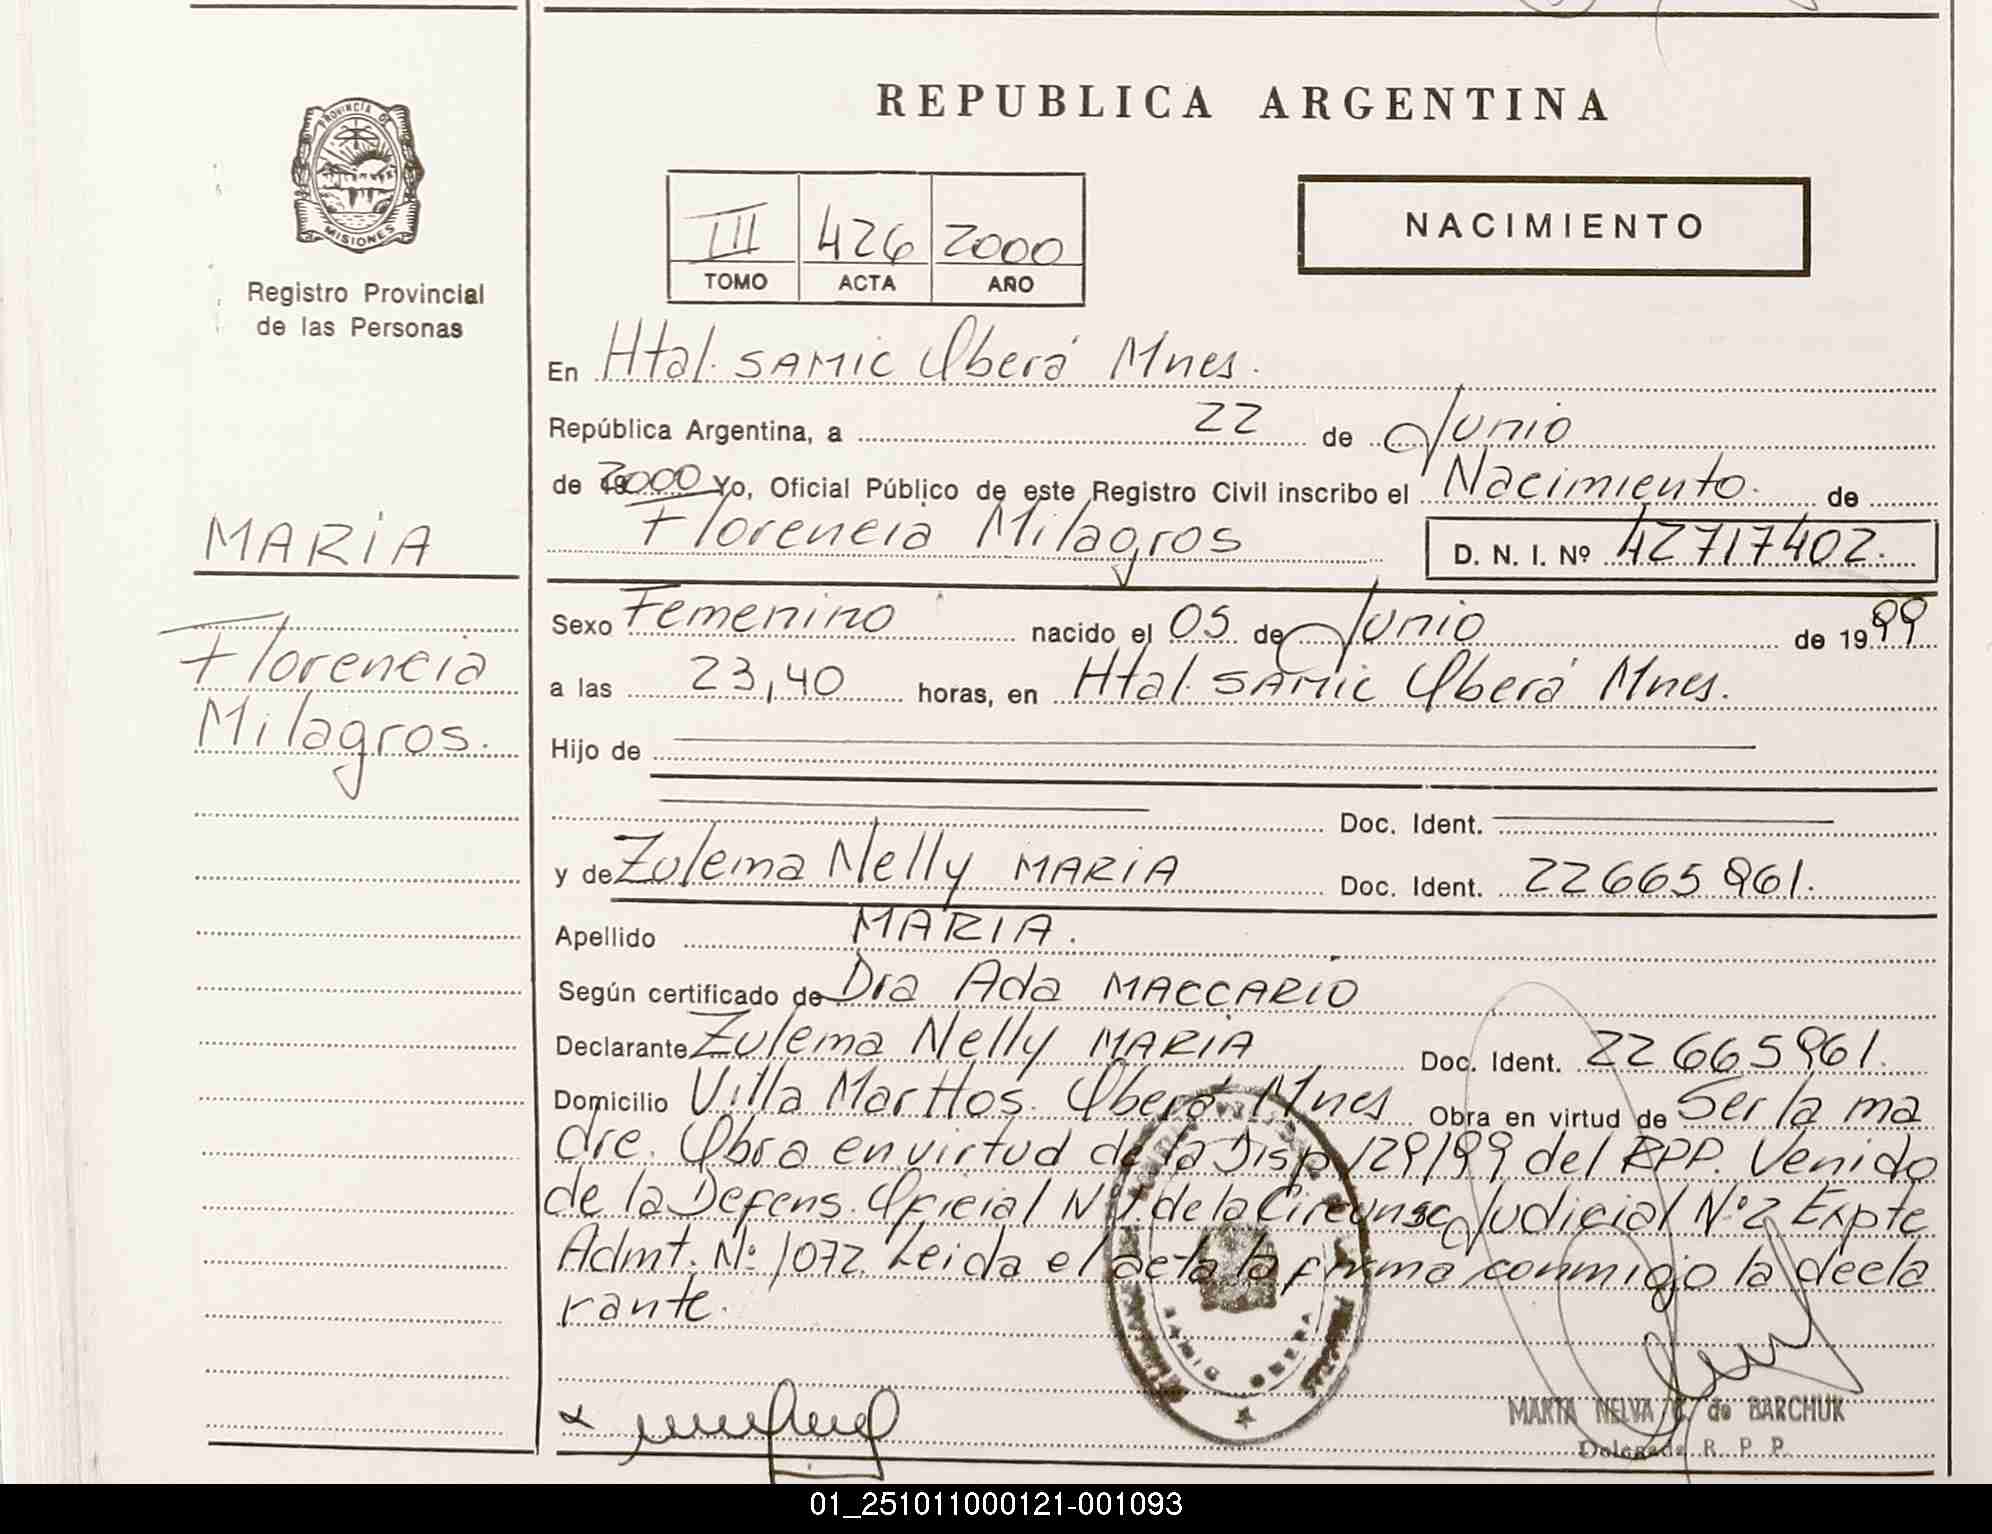 REPUBLICA ARGENTINA
PROVINCIA DE
MISIONES
Registro Provincial
de las Personas
III 426 2000
TOMO ACTA AÑO
NACIMIENTO
En Htal. SAMIC Oberá Mnes.
República Argentina, a 22 de Junio
de 2000 Yo, Oficial Público de este Registro Civil inscribo el Nacimiento. de
Florencia Milagros D. N. I. Nº 42717402.
MARIA
Florencia
Milagros.
Sexo Femenino nacido el 05 de Junio de 1999
a las 23,40 horas, en Htal. SAMIC Oberá Mnes.
Hijo de
Doc. Ident.
y de Zulema Nelly MARIA Doc. Ident. 22665961.
Apellido MARIA.
Según certificado de Dra Ada MACCARIO
Declarante Zulema Nelly MARIA Doc. Ident. 22665961.
Domicilio Villa Marttos. Oberá Mnes Obra en virtud de Ser la ma
dre. Obra en virtud de la Disp 129/99 del RPP. Venido
de la Defens. Oficial Nº 1 de la Circunsc Judicial Nº 2 Expte
Admt. Nº 1072. Leida el acta la firma conmigo la decla
rante.
SAMIC OBERA
MARTA NELVA G. de BARCHUK
Delegada R. P. P.
01_251011000121-001093